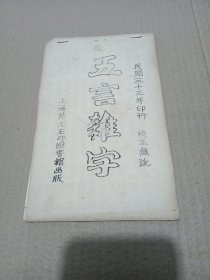 民國三十三年印行 校正無訛
五言雜字
上海錦文石印圖書館出版